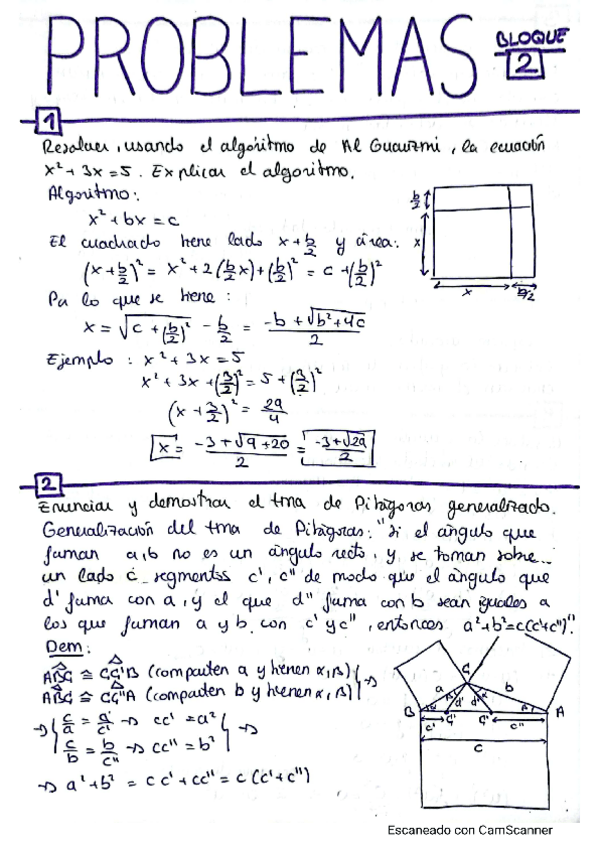 PROBLEMAS BLOQUE 2
1
Resolver, usando el algoritmo de Al Guarizmi, la ecuación
x² + 3x = 5. Explicar el algoritmo.
Algoritmo:
x² + bx = c
El cuadrado tiene lado x + b/2 y área:
(x + b/2)² = x² + 2(b/2 x) + (b/2)² = c + (b/2)²
Pa lo que se tiene:
x = √(c + (b/2)²) - b/2 = (-b + √(b² + 4c))/2
b/2
x
x
b/2
Ejemplo: x² + 3x = 5
x² + 3x + (3/2)² = 5 + (3/2)²
(x + 3/2)² = 29/4
x = (-3 + √(9 + 20))/2 = (-3 + √29)/2
2
Enunciar y demostrar el tma de Pitágoras generalizado.
Generalización del tma de Pitágoras: "Si el ángulo que
forman a, b no es un ángulo recto, y se toman sobre
un lado c segmentos c', c'' de modo que el ángulo que
d' forma con a, y el que d'' forma con b sean iguales a
los que forman a y b con c' y c'', entonces a² + b² = c(c' + c'')".
Dem:
ABC ≅ CC'B (comparten a y tienen α, β)
ABC ≅ CC''A (comparten b y tienen α, β)
c/a = a/c' → cc' = a²
c/b = b/c'' → cc'' = b²
→ a² + b² = cc' + cc'' = c(c' + c'')
C
a
b
d'
d''
B
C'
C''
A
c'
c''
c
Escaneado con CamScanner